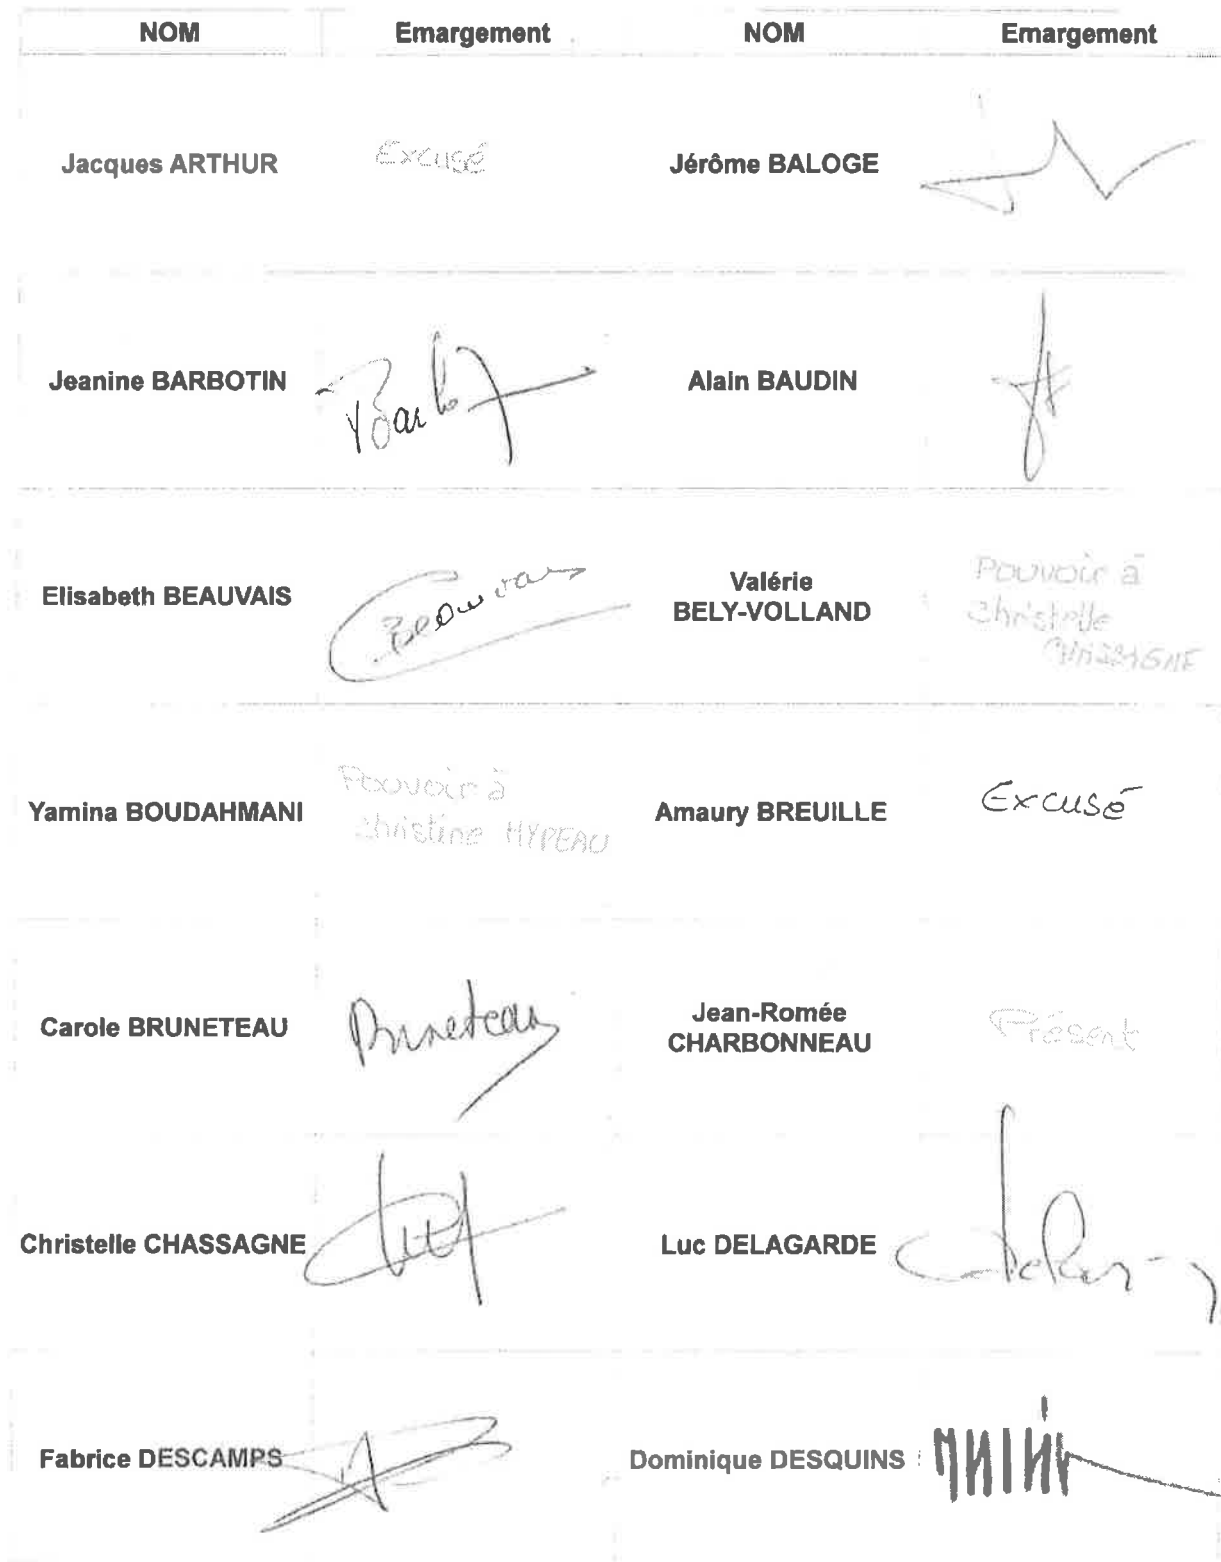 NOM Emargement NOM Emargement
Jacques ARTHUR Excusé Jérôme BALOGE
Jeanine BARBOTIN Alain BAUDIN
Elisabeth BEAUVAIS Beauvais Valérie BELY-VOLLAND Pouvoir à
Christelle
CHASSAGNE
Yamina BOUDAHMANI Pouvoir à
Christine HYPEAU
Amaury BREUILLE Excusé
Carole BRUNETEAU Bruneteau Jean-Romée
CHARBONNEAU Présent
Christelle CHASSAGNE Luc DELAGARDE
Fabrice DESCAMPS Dominique DESQUINS